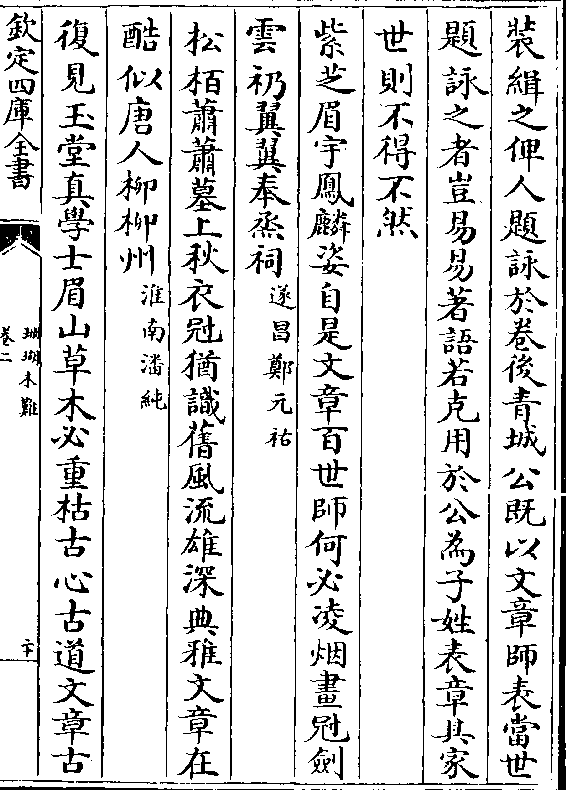 裝緝之俾人題詠於卷後青城公既以文章師表當世
題詠之者豈易易著語若克用於公為子姓表章其家
世則不得不然
紫芝眉宇鳳麟姿自是文章百世師何必凌烟畫冠劍
雲礽翼翼奉烝祠遂昌鄭元祐
松栢蕭蕭墓上秋衣冠猶識舊風流雄深典雅文章在
酷似唐人柳柳州淮南潘純
復見玉堂真學士眉山草木必重枯古心古道文章古
欽定四庫全書
珊瑚木難
卷二